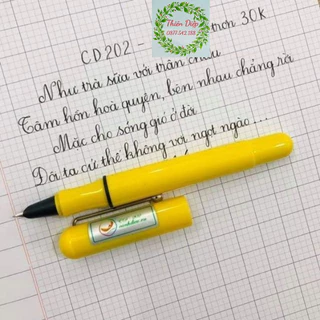 Thiên Diệp
0977.543.788
CD202 - trơn 30K
Như trà sữa với trân châu
Tâm hồn hoà quyện, bên nhau chẳng rời
Mặc cho sóng gió ở đời
Đôi ta cứ thế không vơi ngọt ngào...